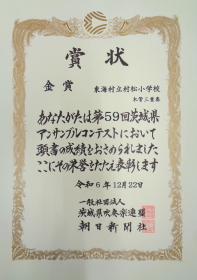 賞状
金賞 東海村立村松小学校
木管三重奏
あなたがたは第59回茨城県
アンサンブルコンテストにおいて
頭書の成績をおさめられました
ここにその栄誉をたたえ表彰します
令和6年12月22日
一般社団法人
茨城県吹奏楽連盟
朝日新聞社